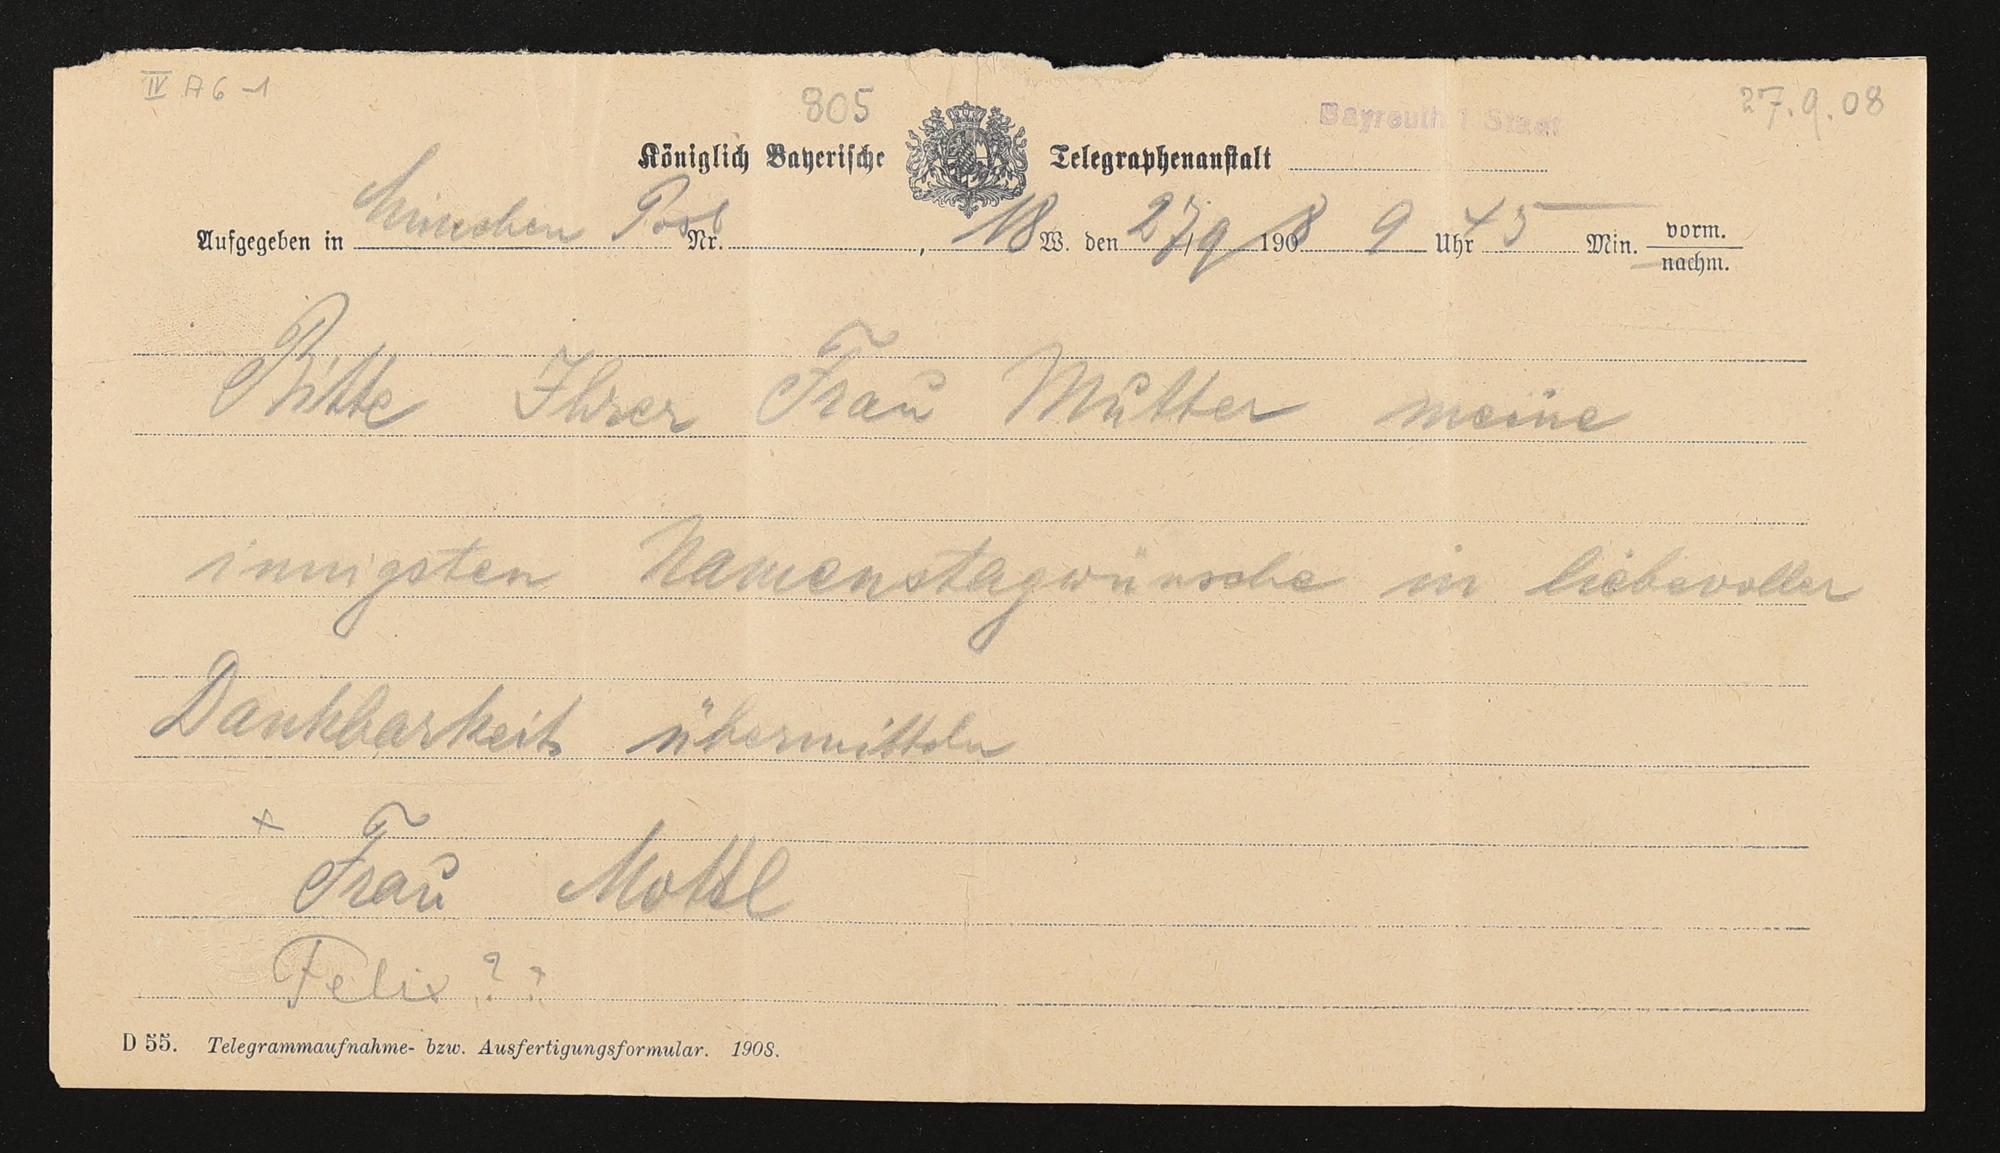 IV A 6 - 1
805
Bayreuth 1 Stadt
27.9.08
Königlich Bayerische Telegraphenanstalt
Aufgegeben in München Post Nr. , 18 W. den 27/9 1908 9 Uhr 45 Min. vorm. nachm.
Bitte Ihrer Frau Mutter meine
innigsten Namenstagwünsche in liebevoller
Dankbarkeit übermitteln
x
Frau Mottl
Felix ? ?
D 55. Telegrammaufnahme- bzw. Ausfertigungsformular. 1908.